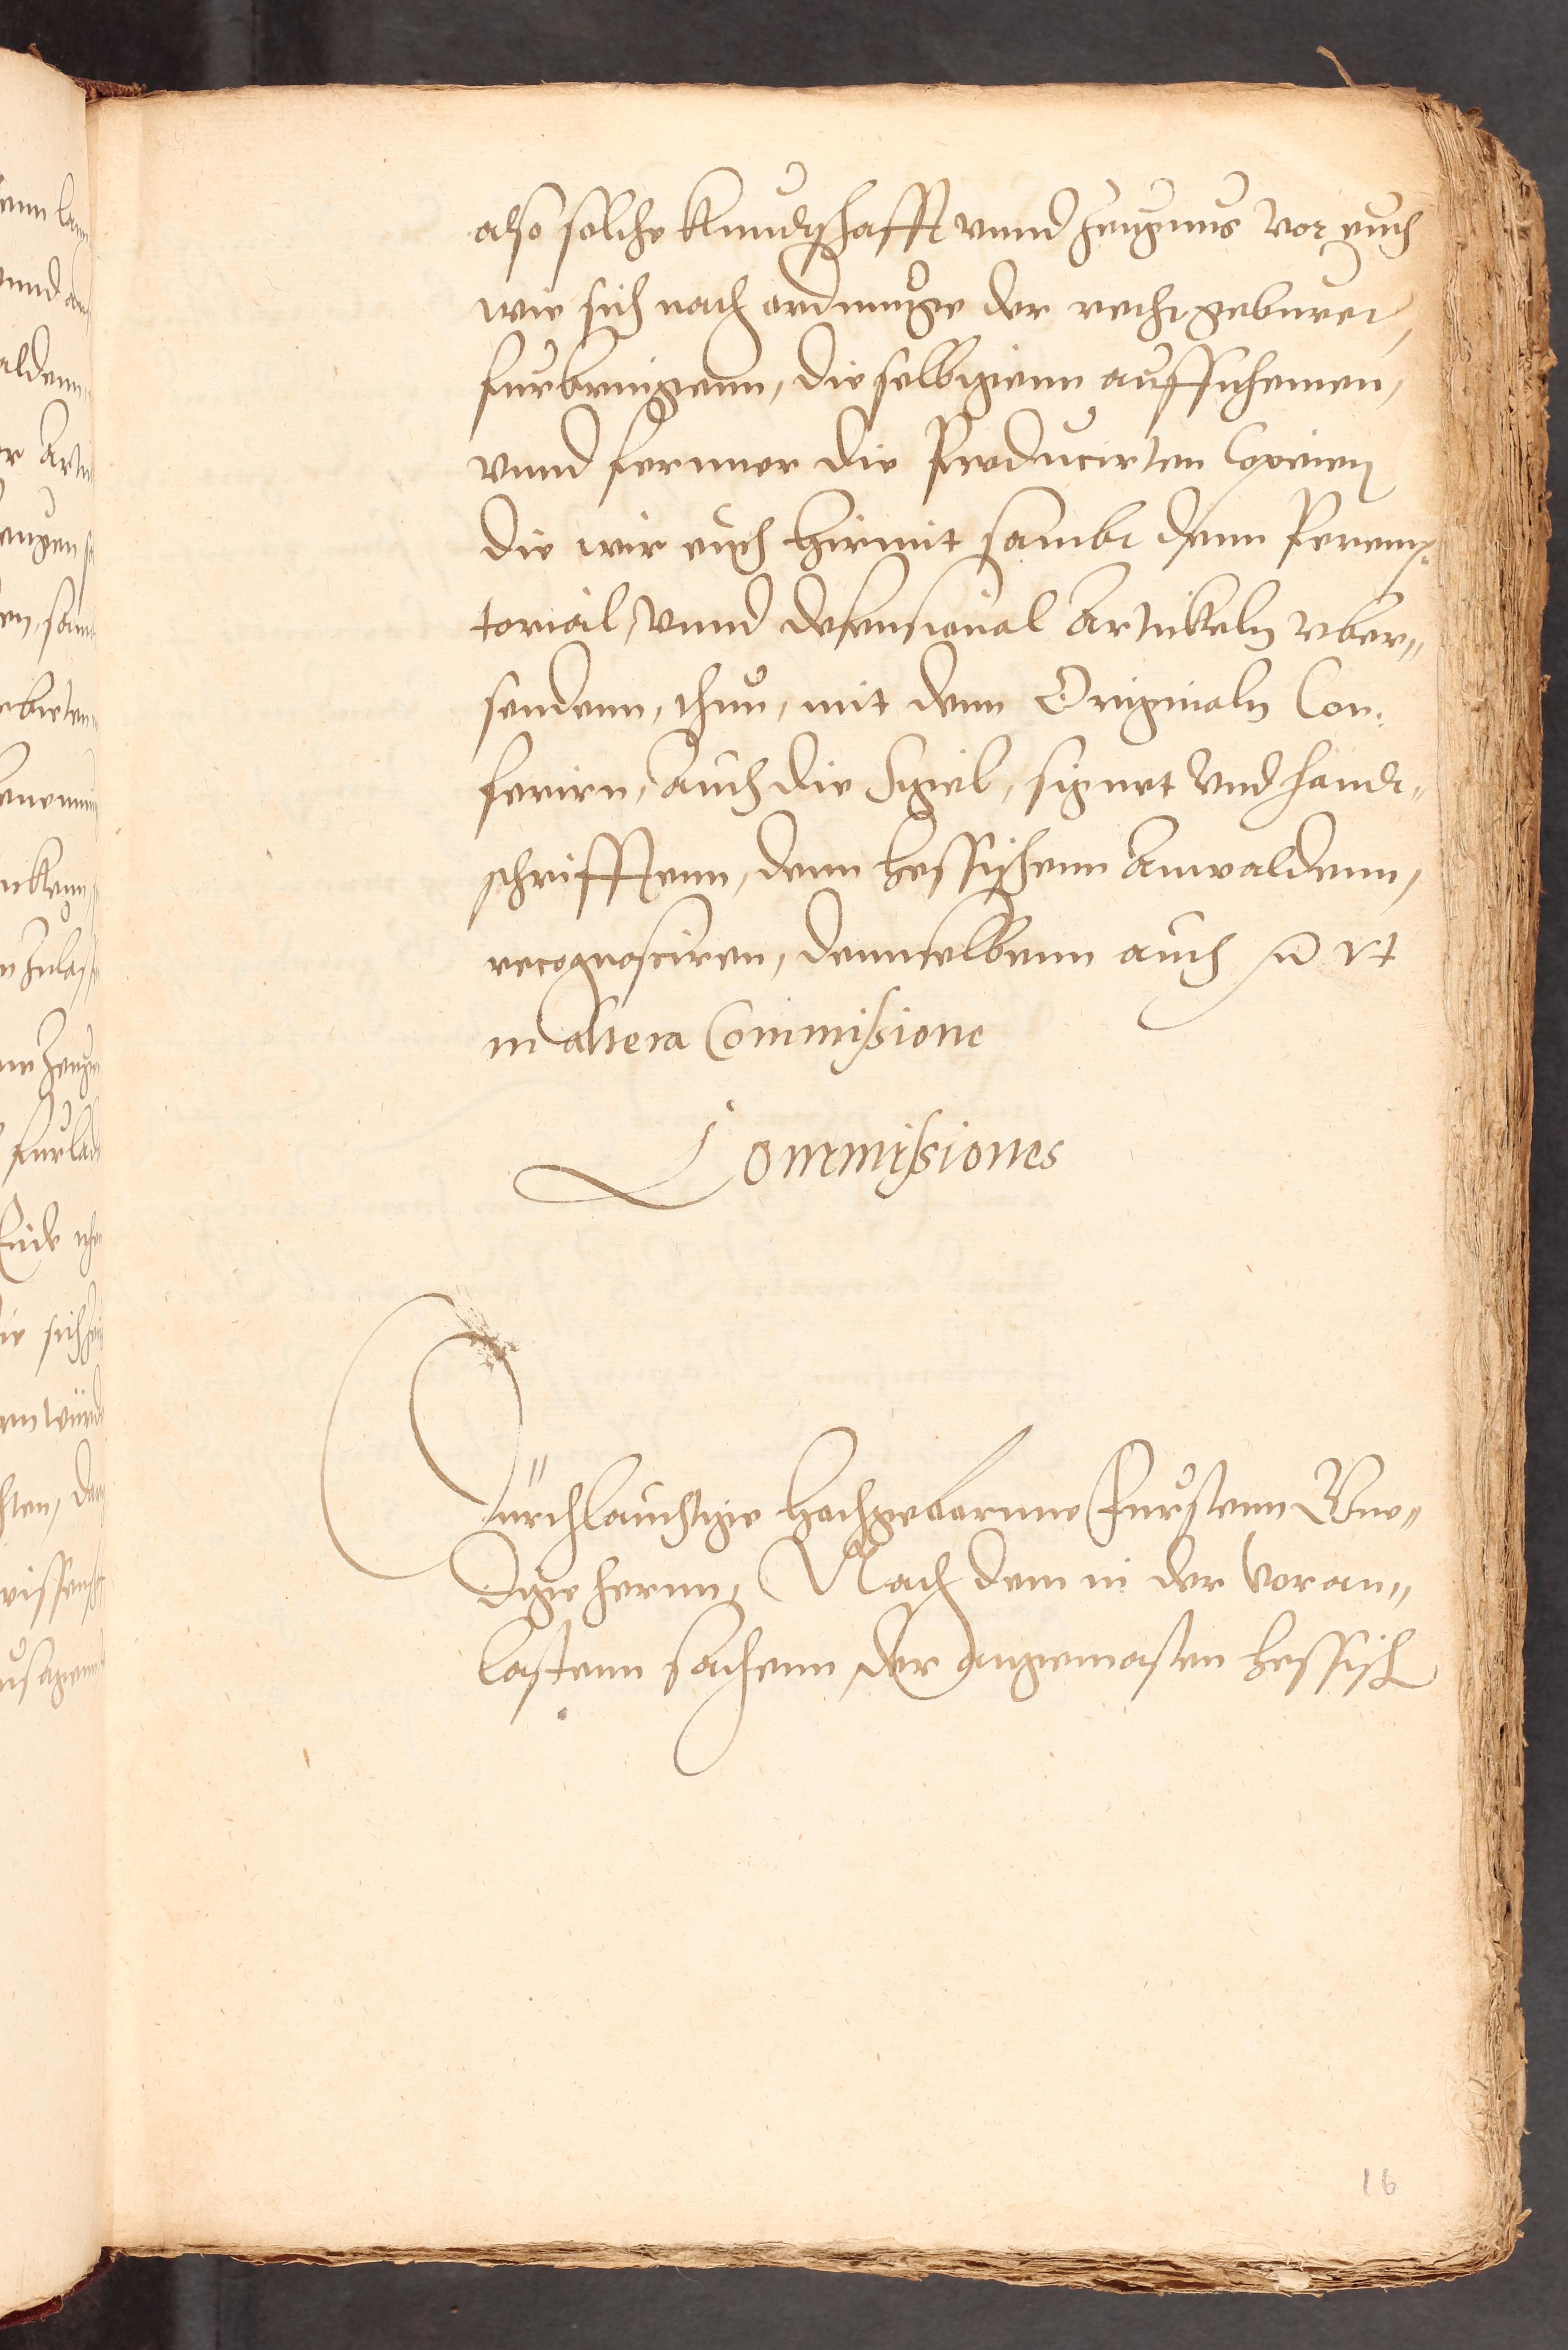 also solche Kundschafft vnnd Zeugnus vor euch
wie sich nach ordnunge der recht geburet,
furbringenn, die selbigenn auffnehemen,
vnnd fernner die Producirten Copeien
die wir euch hirmit sambt denn Peremp-
torial, vnnd defensional Artickeln vber„
sendenn, thun, mit denn Originaln Con-
ferirn, auch die Sigiel, signet vnd handt„
schrifftenn, denn hessischenn Anwaldenn,
recognosciren, dennselbenn auch vt
in altera Commissione
Commissiones
Durchlauchtige hochgebornne Fursten Gne„
dige hernn, Nach dem in der voran„
lastenn sachenn der angemasten hessisch
16